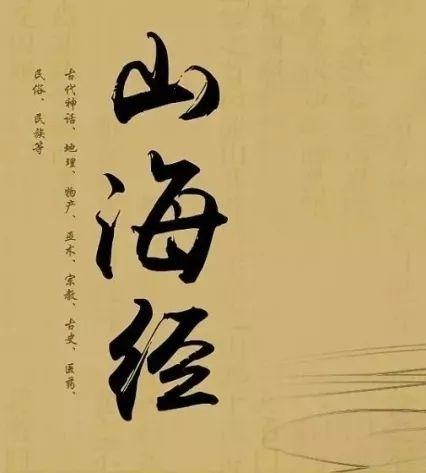 山海经
古代神话、地理、物产、巫术、宗教、古史、医药、
民俗、民族等